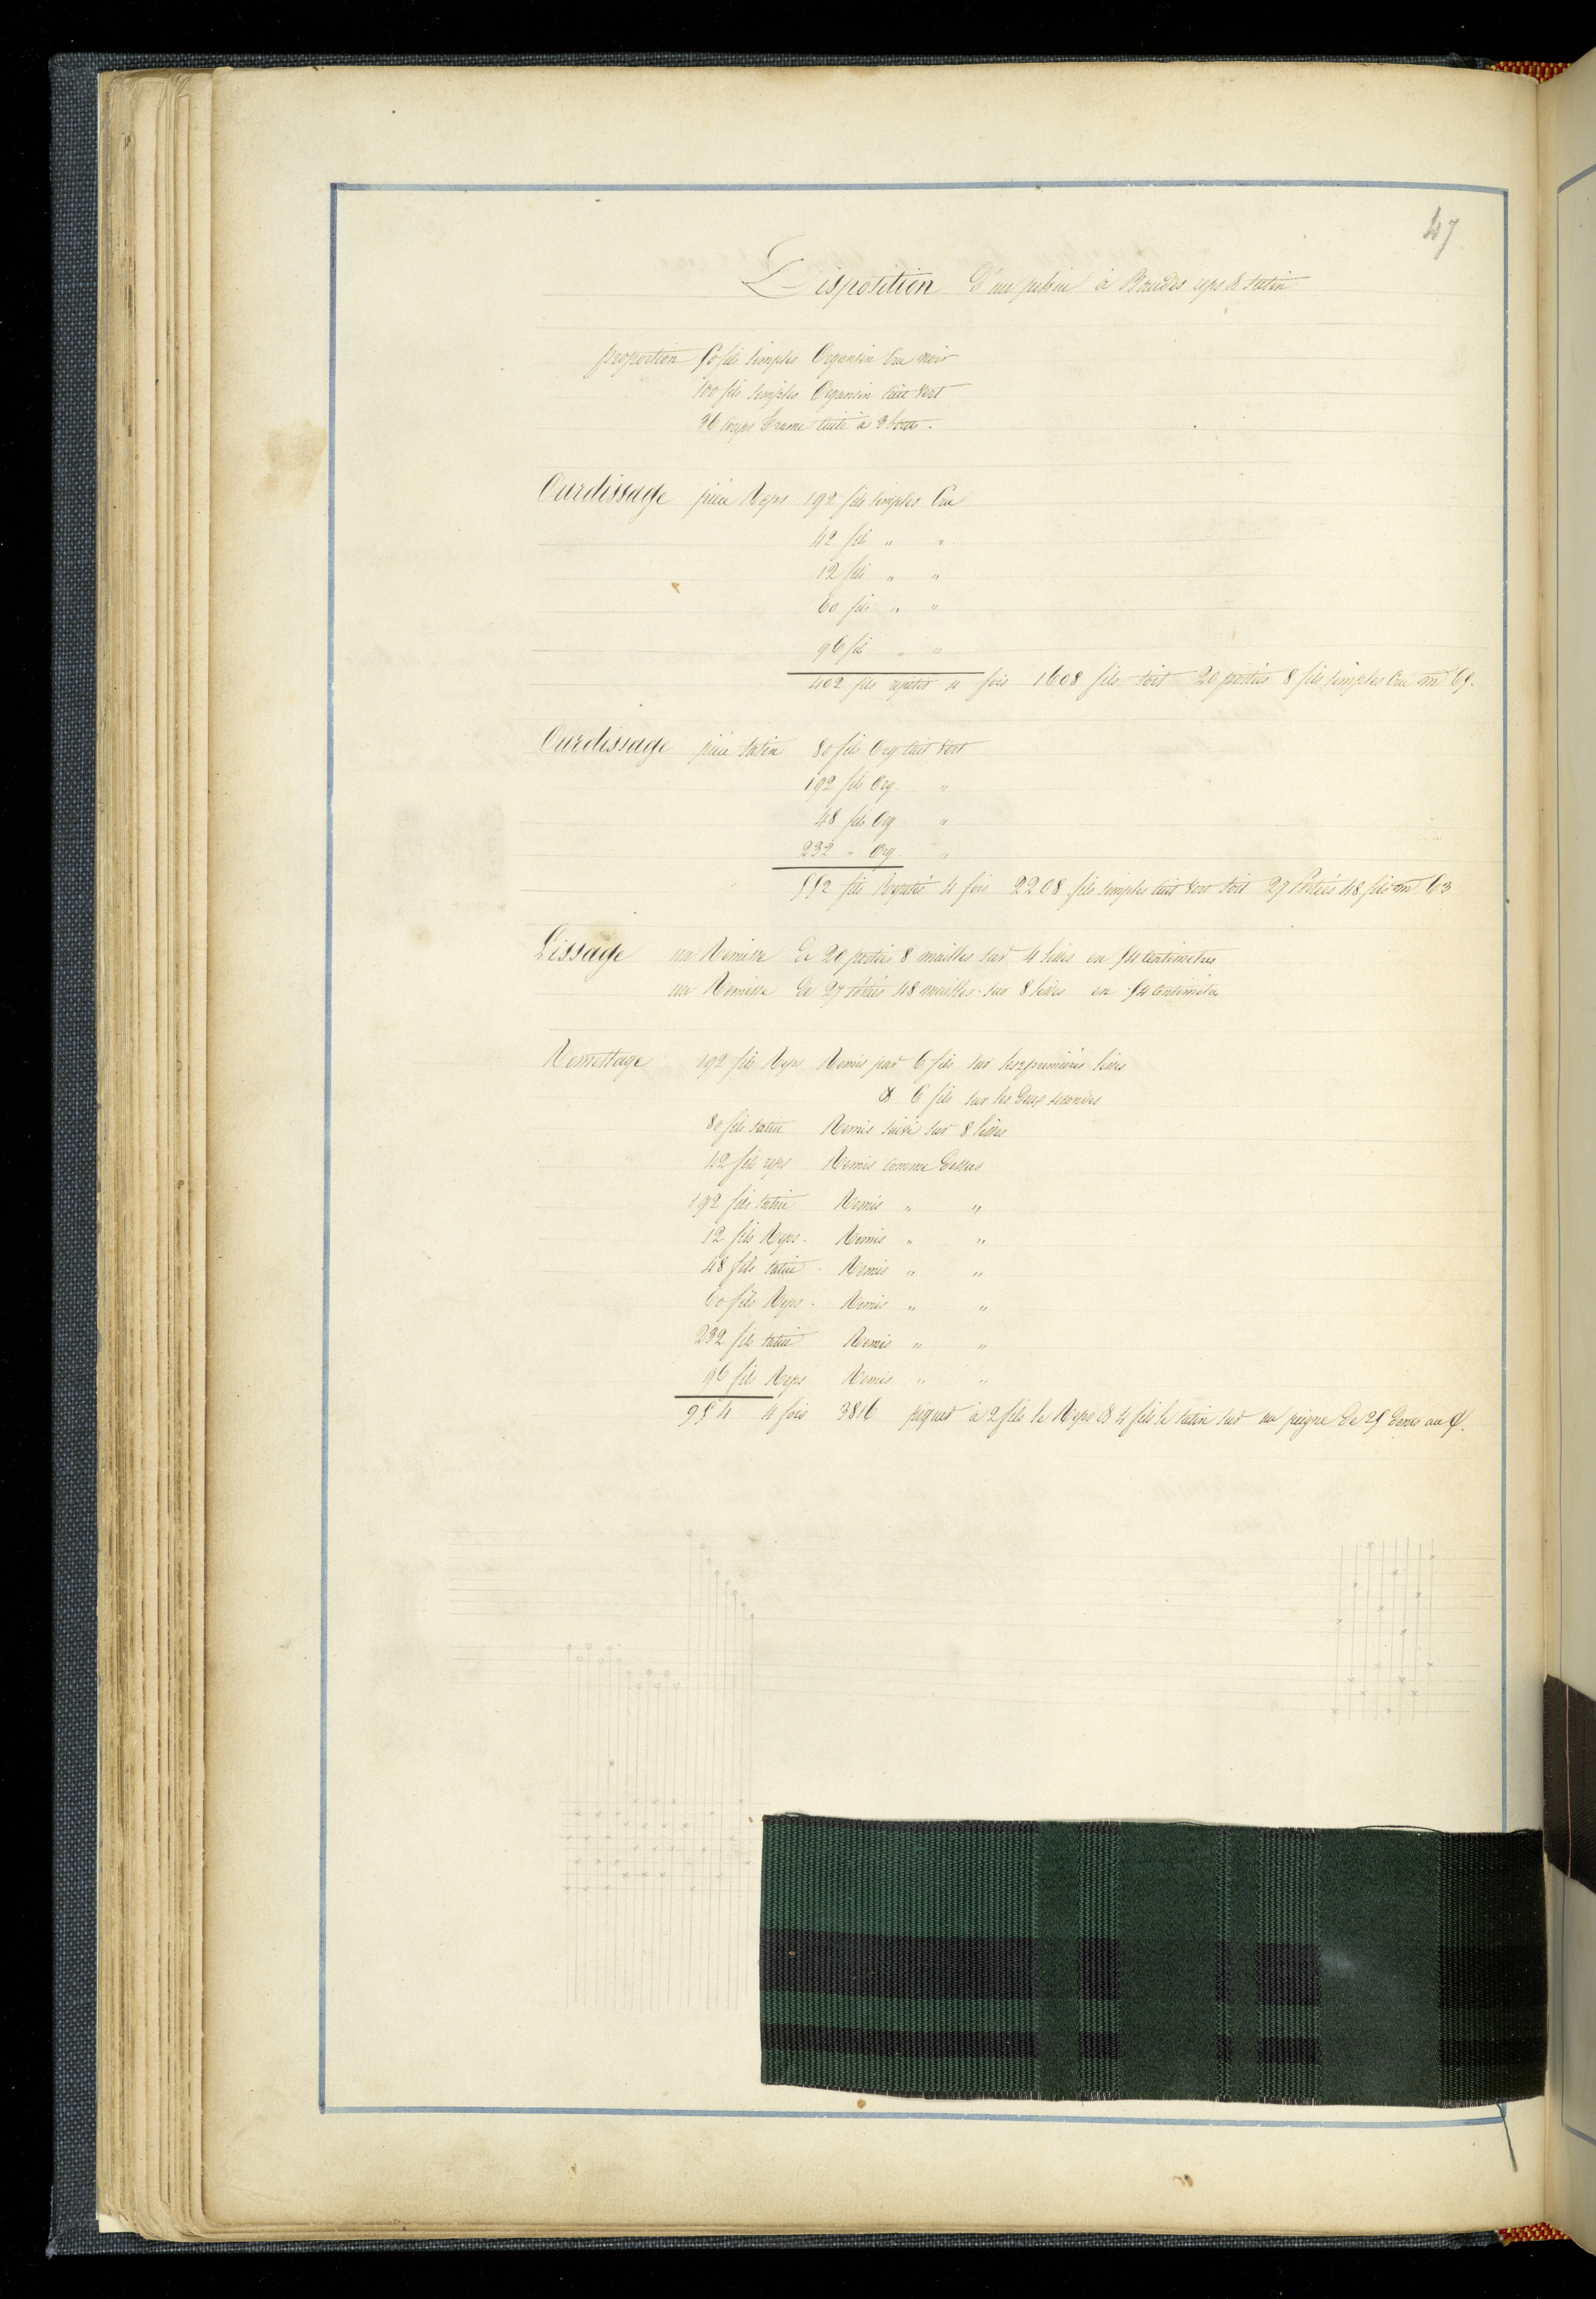 47
Disposition d'une pekin à Bandes reps & satin
proportion 50 fils simples Organsin Cru noir
100 fils simples Organsin cuit vert
36 coups trame cuite à 3 bouts.
Ourdissage pièce Reps 192 fils simples Cru
42 fils " "
12 fils " "
60 fils " "
96 fils " "
402 fils répétés 4 fois 1608 fils soit 20 portées 8 fils simples Cru
Ourdissage pièce satin 80 fils Org cuit vert
192 fils Org "
48 fils Org "
232 " Org. "
552 fils Répétés 4 fois 2208 fils simples cuit vert soit 27 Portées 48 fils
Lissage un Remisse de 20 portées 8 mailles sur 4 lisses en 54 centimètres
un Remisse de 27 portées 48 mailles sur 8 lisses en 54 centimètres
Remettage 192 fils Reps Remis par 6 fils sur les 2 premières lisses
& 6 fils sur les deux secondes
80 fils satin Remis suivi sur 8 lisses
42 fils reps Remis comme dessus
192 fils satin Remis " "
12 fils Reps. Remis " "
48 fils satin. Remis " "
60 fils Reps. Remis " "
232 fils satin Remis " "
96 fils Reps Remis " "
954 4 fois 3816 piqués à 2 fils le Reps & 4 fils le satin sur un peigne de 25 dents au